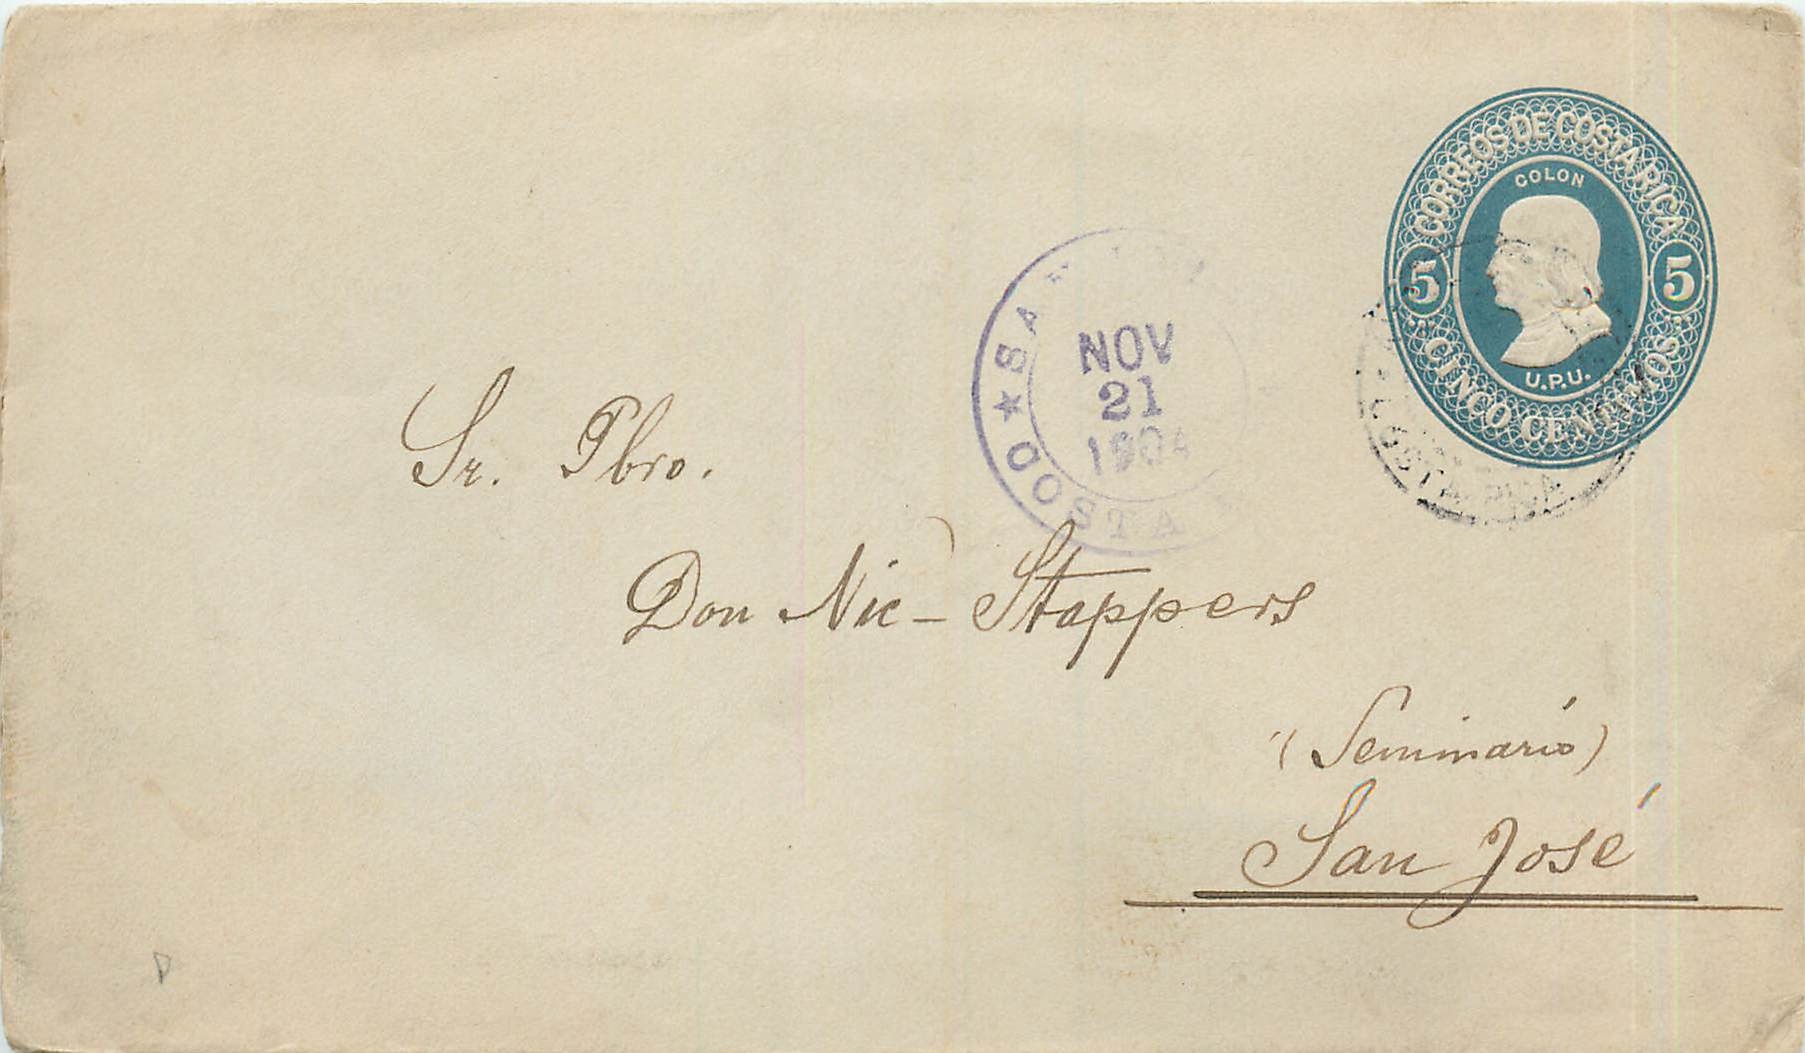 CORREOS DE COSTA RICA
COLON
5 5
U.P.U.
CINCO CENTIMOS
NOV
21
1904
COSTA RICA
Sr. Pbro.
Don Nic- Stappers
(Seminario)
San José